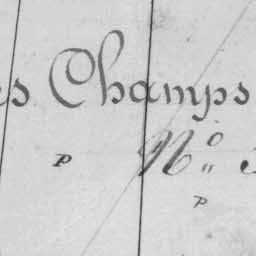 es Champs
P
No
P